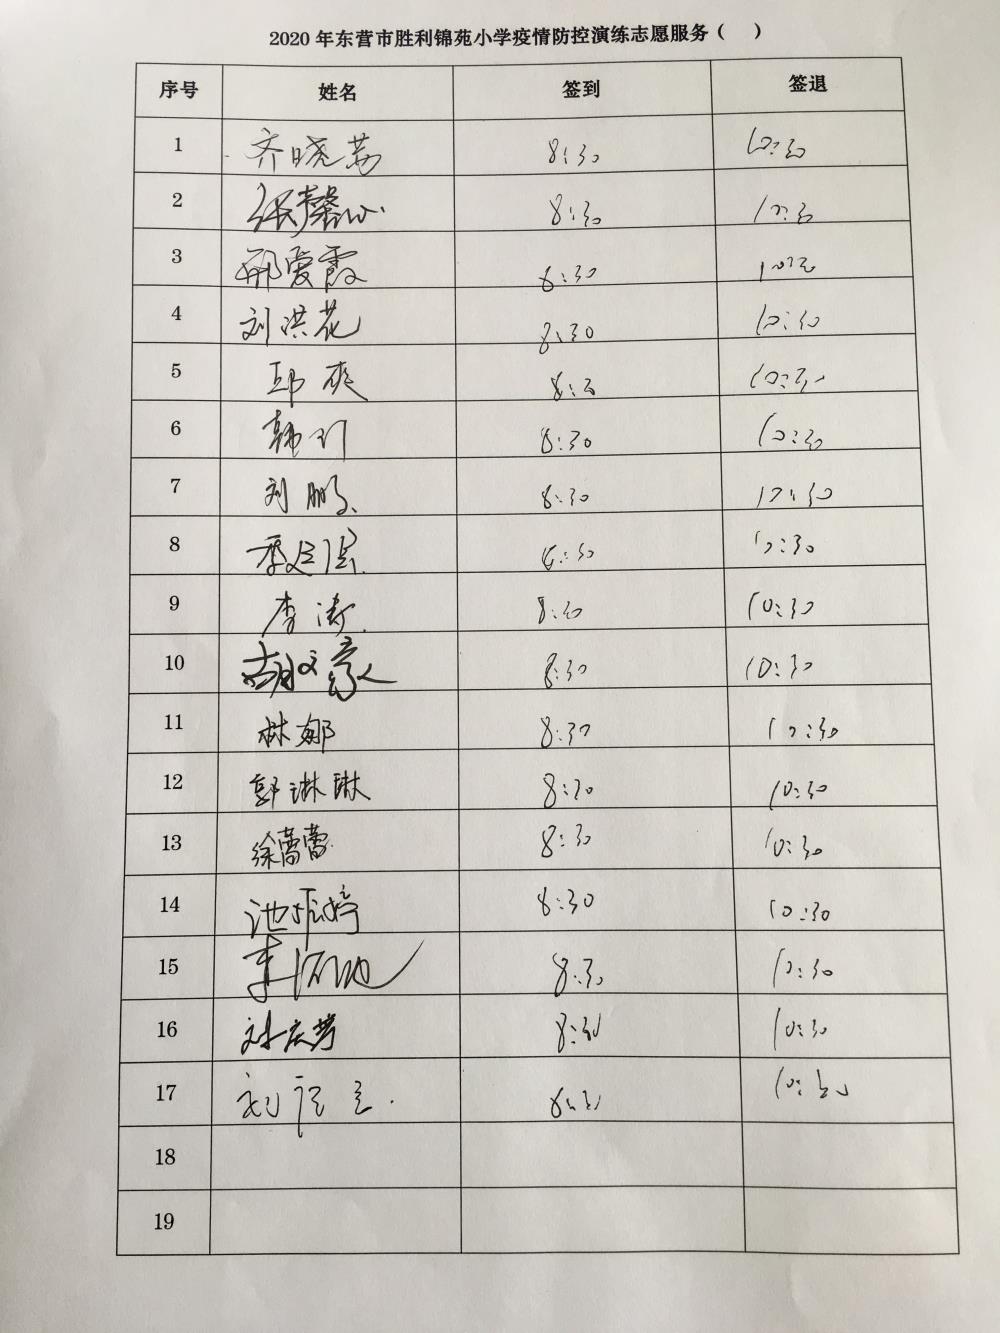 2020 年东营市胜利锦苑小学疫情防控演练志愿服务（ ）
序号 姓名 签到 签退
1 齐晓荔 8:30 10:30
2 张馨心 8:30 10:30
3 邢爱霞 8:30 10:30
4 刘洪花 8:30 10:30
5 邱爽 8:30 10:30
6 8:30 10:30
7 刘鹏 8:30 10:30
8 8:30 10:30
9 李涛 8:30 10:30
10 胡文豪 8:30 10:30
11 林娜 8:30 10:30
12 郭琳琳 8:30 10:30
13 徐蕾蕾 8:30 10:30
14 8:30 10:30
15 8:30 10:30
16 8:30 10:30
17 8:30 10:30
18
19